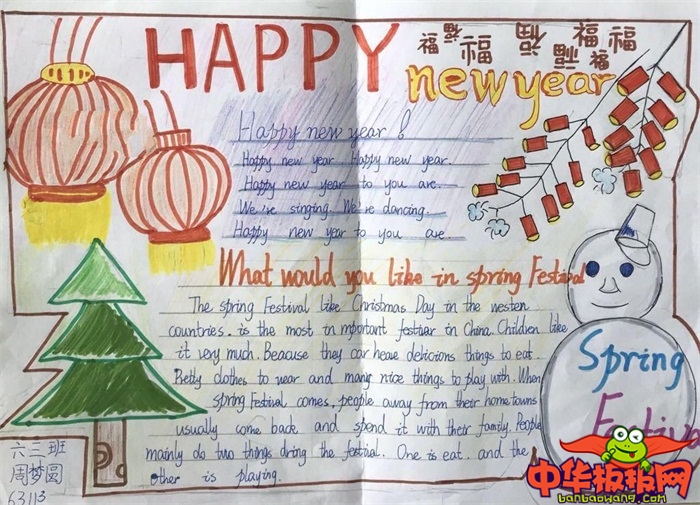 HAPPY
福 福 福 福 福 福 福
new year
Happy new year !
Happy new year. Happy new year.
Happy new year to you are.
We're singing. We're dancing.
Happy new year to you are.
What would you like in spring Festival
The spring Festival like Christmas Day in the westen
countries. is the most in mportant festiver in China. Children like
it very much. Beacause they car heave delicions things to eat.
Pretty clothes to wear and many nice things to play with. When
spring Festival comes, people away from their home towns
usually come back and spend it with their family. People
mainly do two things dring the festival. One is eat. and the
other is playing.
Spring
Festival
六二班
周梦圆
63113
中华板报网
banbaowang.com